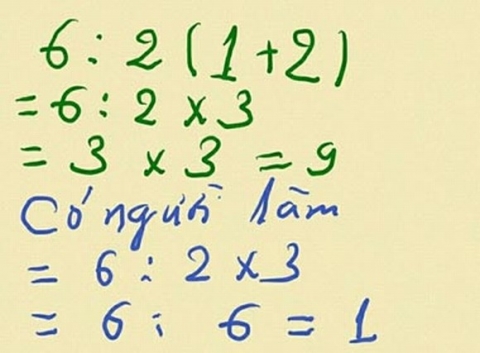 6 : 2 (1+2)
= 6 : 2 x 3
= 3 x 3 = 9
Có người làm
= 6 : 2 x 3
= 6 : 6 = 1